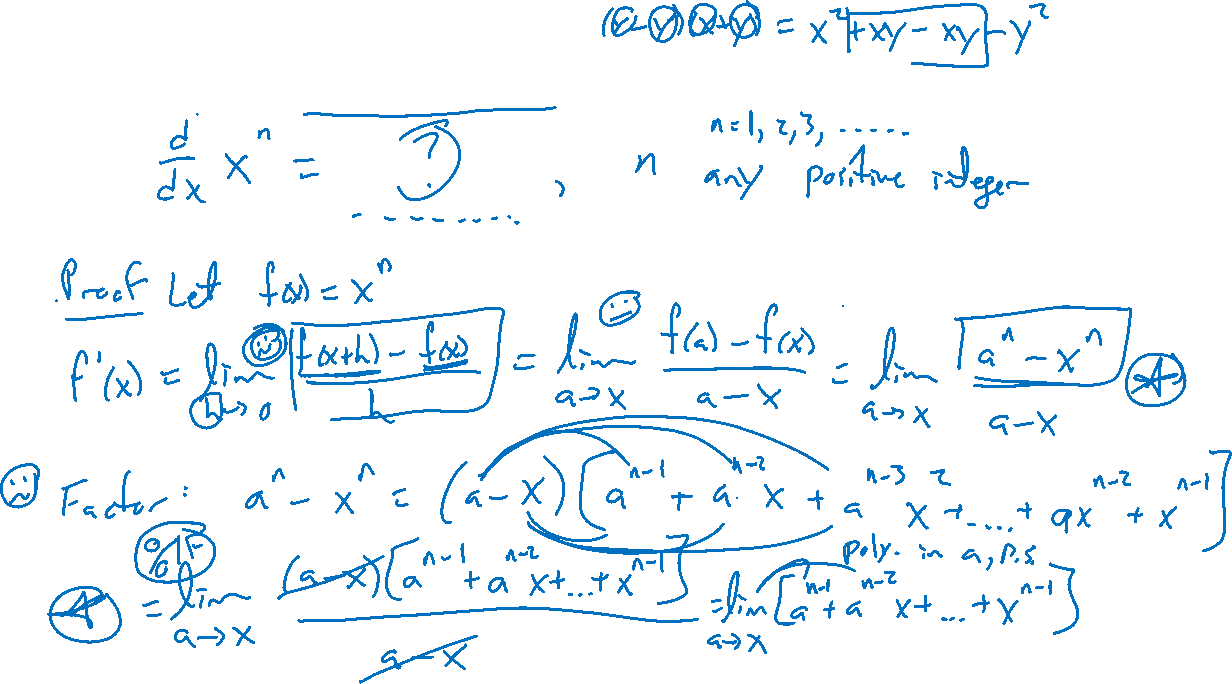 (x-y)(x+y) = x² + xy - xy - y²
n=1, 2, 3, ......
d/dx xⁿ = ? , n any positive integer
Proof Let f(x) = xⁿ
f'(x) = lim h→0 (f(x+h) - f(x))/h = lim a→x (f(a) - f(x))/(a-x) = lim a→x (aⁿ - xⁿ)/(a-x)
Factor: aⁿ - xⁿ = (a-x)[aⁿ⁻¹ + aⁿ⁻² x + aⁿ⁻³ x² + ..... + axⁿ⁻² + xⁿ⁻¹]
poly. in a, D.S.
= lim a→x (a-x)[aⁿ⁻¹ + aⁿ⁻² x + ... + xⁿ⁻¹]/(a-x) = lim a→x [aⁿ⁻¹ + aⁿ⁻² x + ... + xⁿ⁻¹]